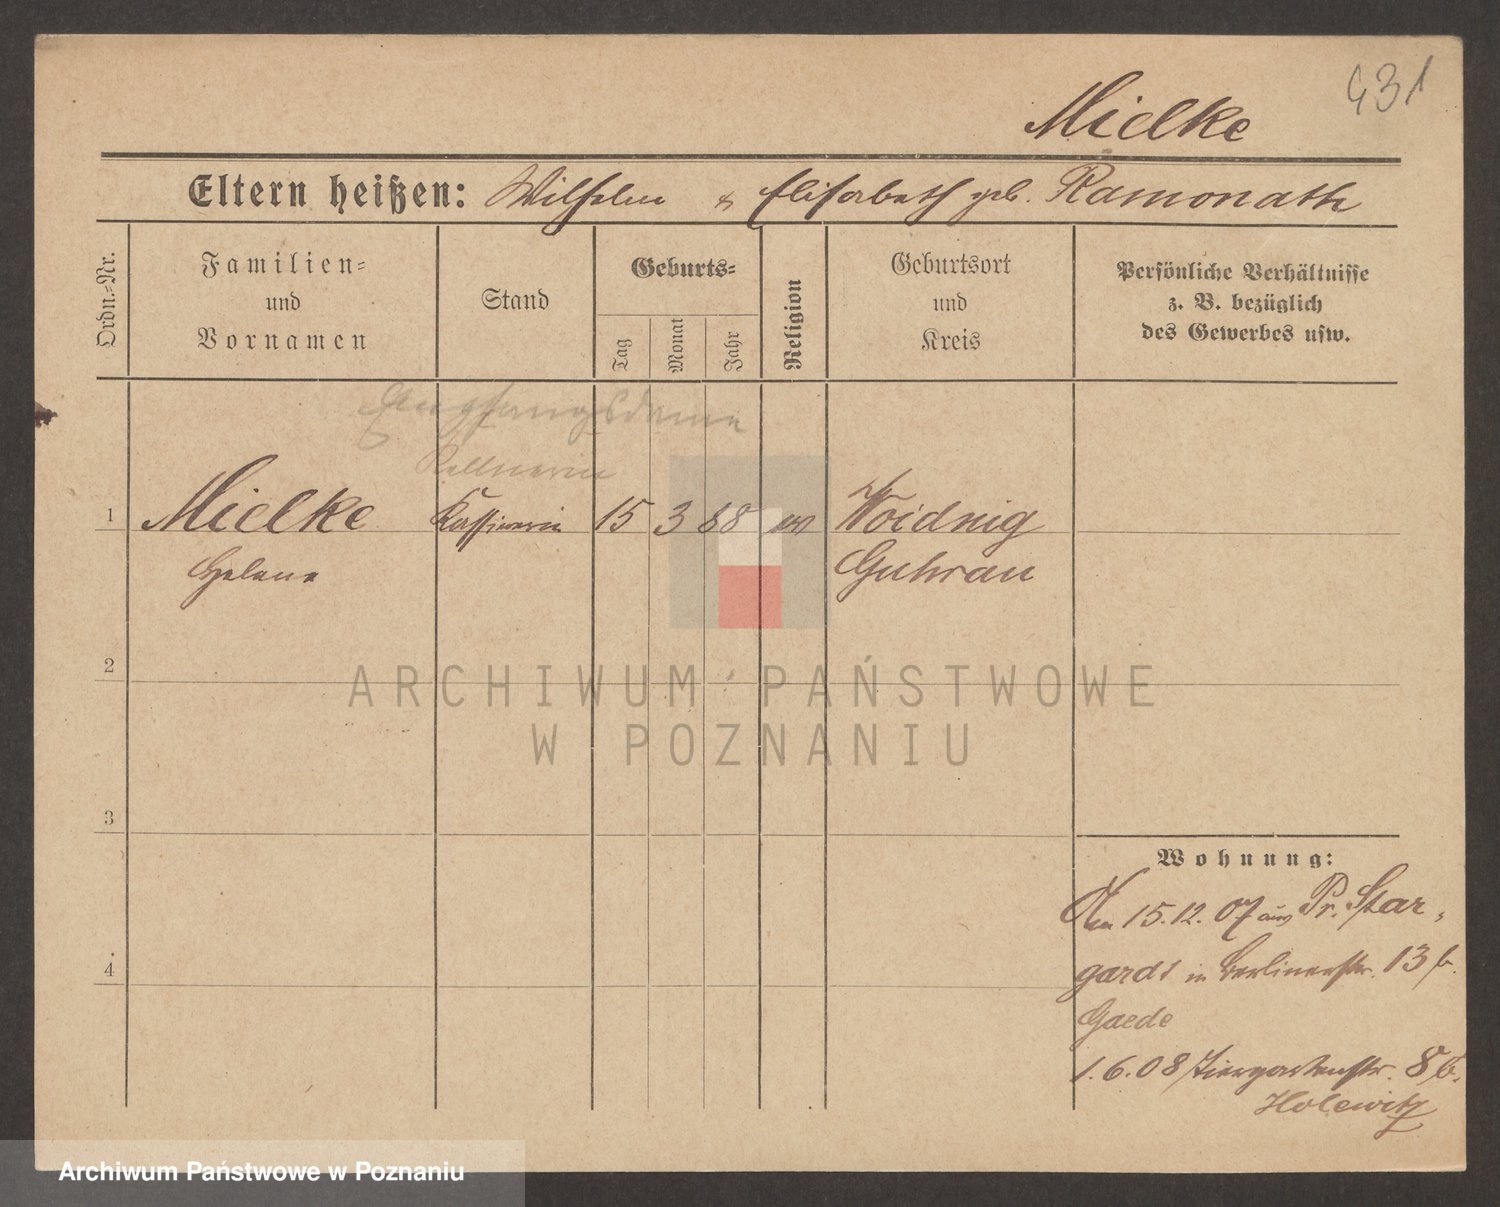 431
Mielke
Eltern heißen: Wilhelm & Elisabeth geb. Ramonath
Ordn.-Nr.
Familien-
und
Vornamen
Stand
Geburts-
Tag
Monat
Jahr
Religion
Geburtsort
und
Kreis
Persönliche Verhältnisse
z. B. bezüglich
des Gewerbes usw.
Empfangsdame
Kellnerin
1 Mielke Kassiererin 15 3 88 ev Woidnig
Helene Guhrau
2
ARCHIWUM PAŃSTWOWE
W POZNANIU
3
Wohnung:
Am 15.12.07 aus Pr. Star-
gardt in Berlinerstr. 13 b.
Gaede
4
1.6.08 Tiergartenstr. 8 b.
Holewitz
Archiwum Państwowe w Poznaniu